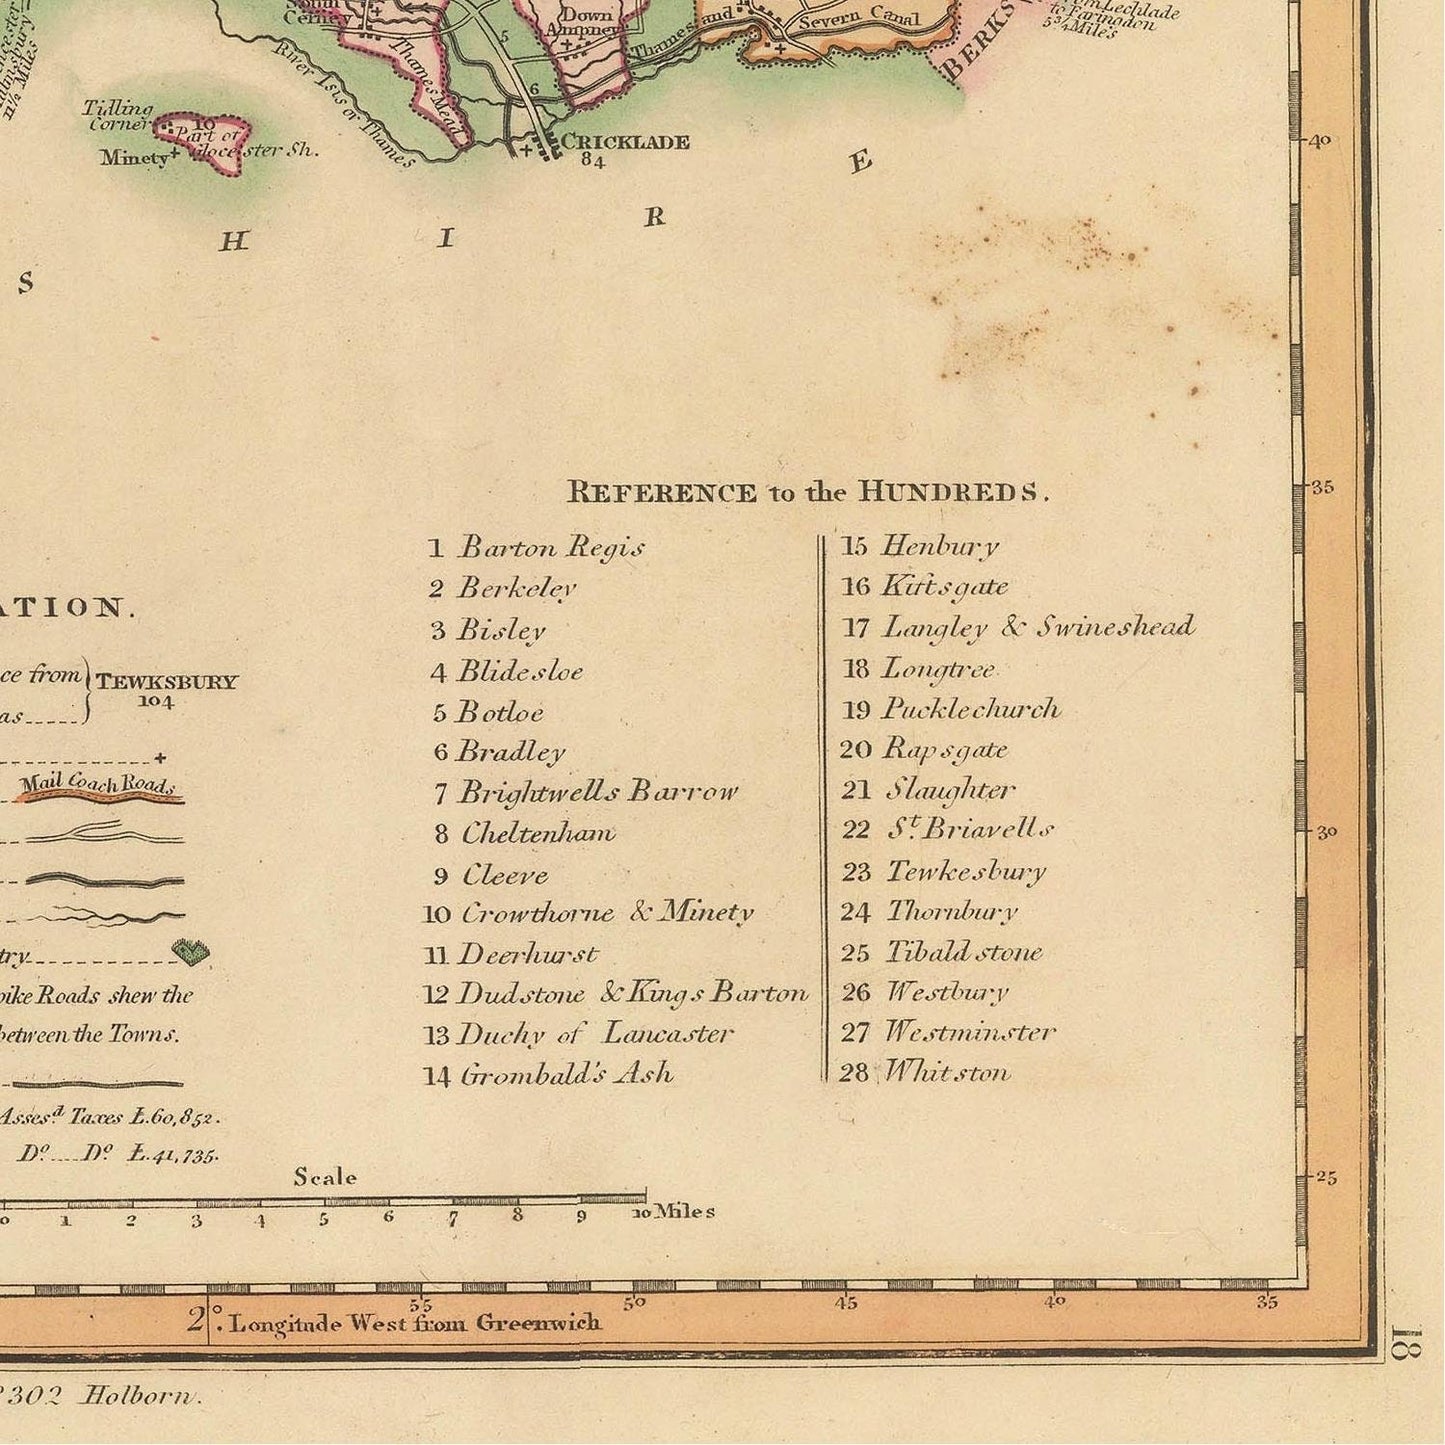 South
Cerney
Down
Ampney
Thames and
Severn Canal
BERKS
Lechlade
to Faringdon
5¾ Miles
11½ Miles
5
6
River Isis or Thames
Thames Mead
Tidling
Corner
10
Part of
Glocester Sh.
Minety
CRICKLADE
84
S H I R E
40
35
30
25
REFERENCE to the HUNDREDS.
1 Barton Regis
2 Berkeley
3 Bisley
4 Blidesloe
5 Botloe
6 Bradley
7 Brightwells Barrow
8 Cheltenham
9 Cleeve
10 Crowthorne & Minety
11 Deerhurst
12 Dudstone & Kings Barton
13 Duchy of Lancaster
14 Grombald's Ash
15 Henbury
16 Kiftsgate
17 Langley & Swineshead
18 Longtree
19 Pucklechurch
20 Rapsgate
21 Slaughter
22 St. Briavells
23 Tewkesbury
24 Thornbury
25 Tibaldstone
26 Westbury
27 Westminster
28 Whitston
ATION.
ce from
TEWKSBURY
104
as
Mail Coach Roads
try
pike Roads shew the
between the Towns.
Assesd. Taxes £.60,852.
Do. Do £.41,735.
Scale
0 1 2 3 4 5 6 7 8 9 10 Miles
55 50 45 40 35
2°. Longitude West from Greenwich
18
302 Holborn.